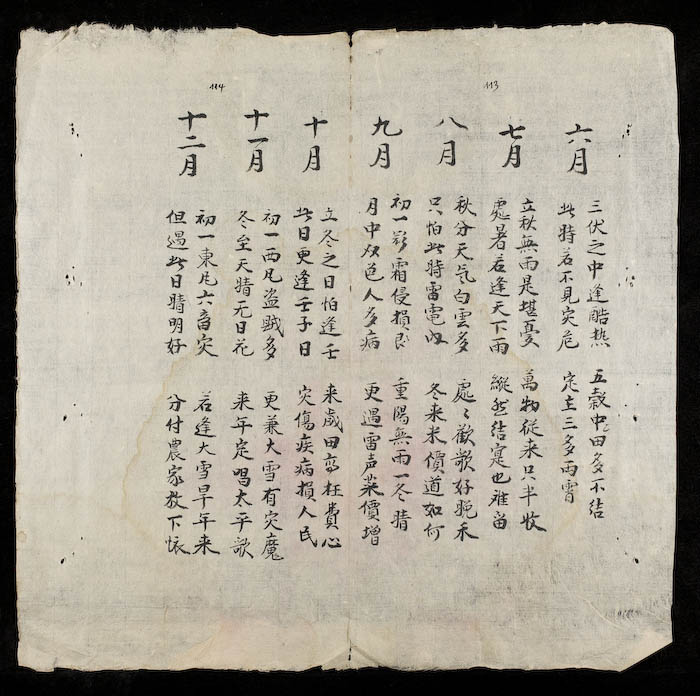 113
六月
三伏之中逢酷热 五穀中田多不结
此時若不見灾危 定主三多雨雪
七月
立秋無雨是堪憂 萬物従来只半收
處暑若逢天下雨 縱然结寔也难苗
八月
秋分天気白雲多 處々歡歌好晚禾
只怕此時雷電 冬来米價道如何
九月
初一霜侵損民 重陽無雨一冬晴
月中色人多病 更遇雷声菜價增
114
十月
立冬之日怕逢壬 来歲田高枉費心
此日更逢壬子日 灾傷疾病損人民
十一月
初一西凡盗贼多 更兼大雪有灾魔
冬至天晴无日花 来年定唱太平歌
十二月
初一東凡六畜灾 若逢大雪旱年来
但遇此日晴明好 分付農家放下懐